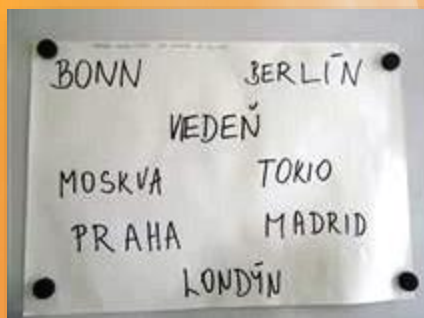 BONN BERLÍN
VIEDEŇ
MOSKVA TOKIO
PRAHA MADRID
LONDÝN